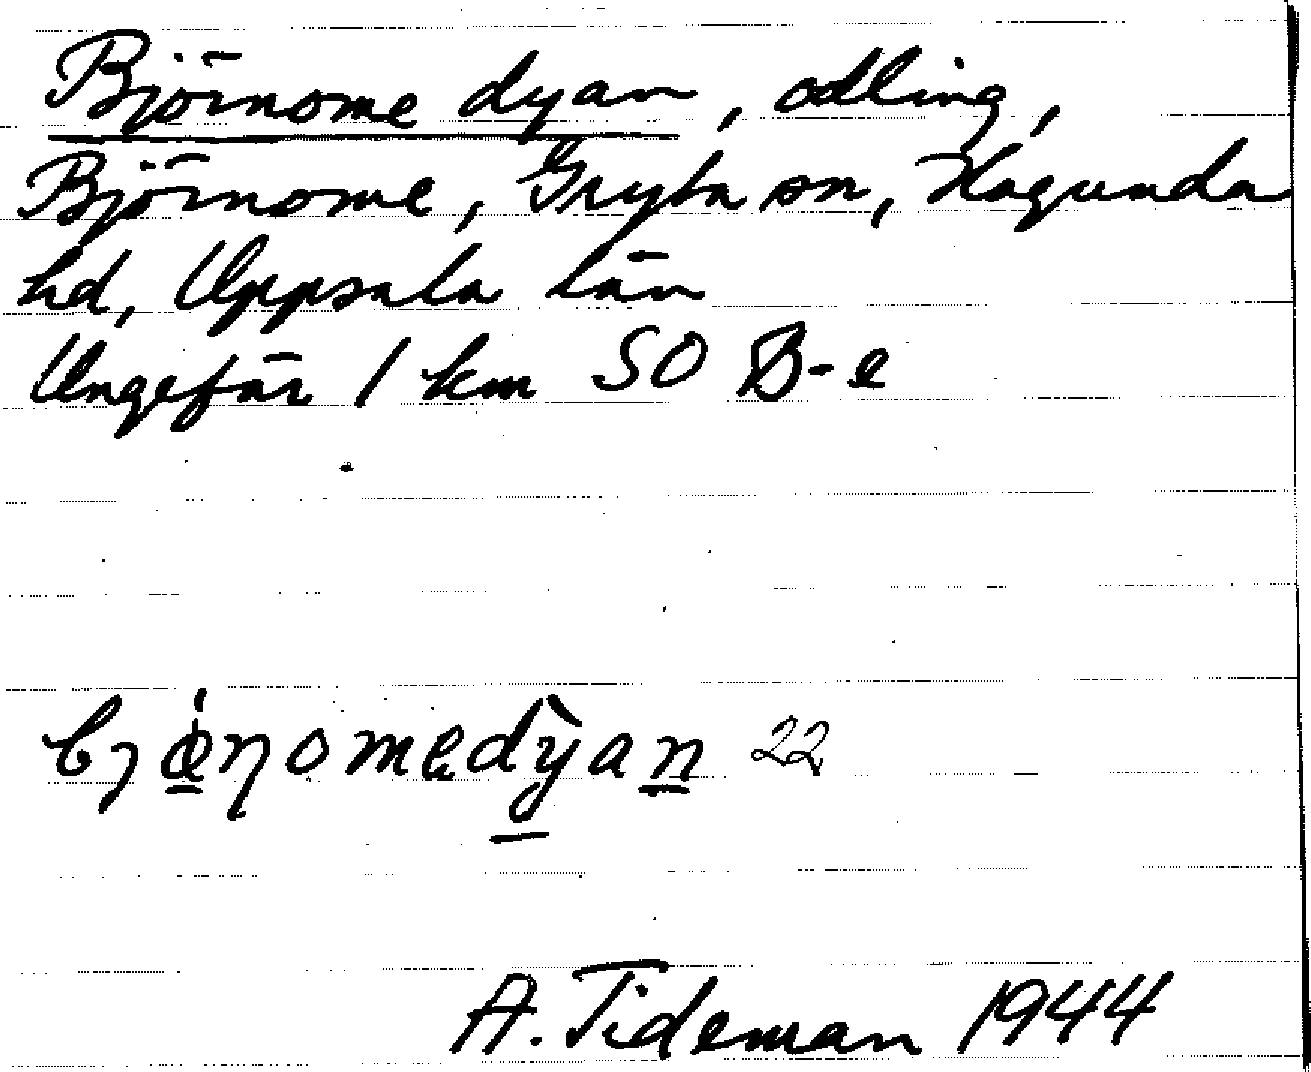 Björnome dyan, odling,
Björnome, Gryta sn, Hagunda
hd, Uppsala län
Ungefär 1 km SO B-e
22
A. Tideman 1944